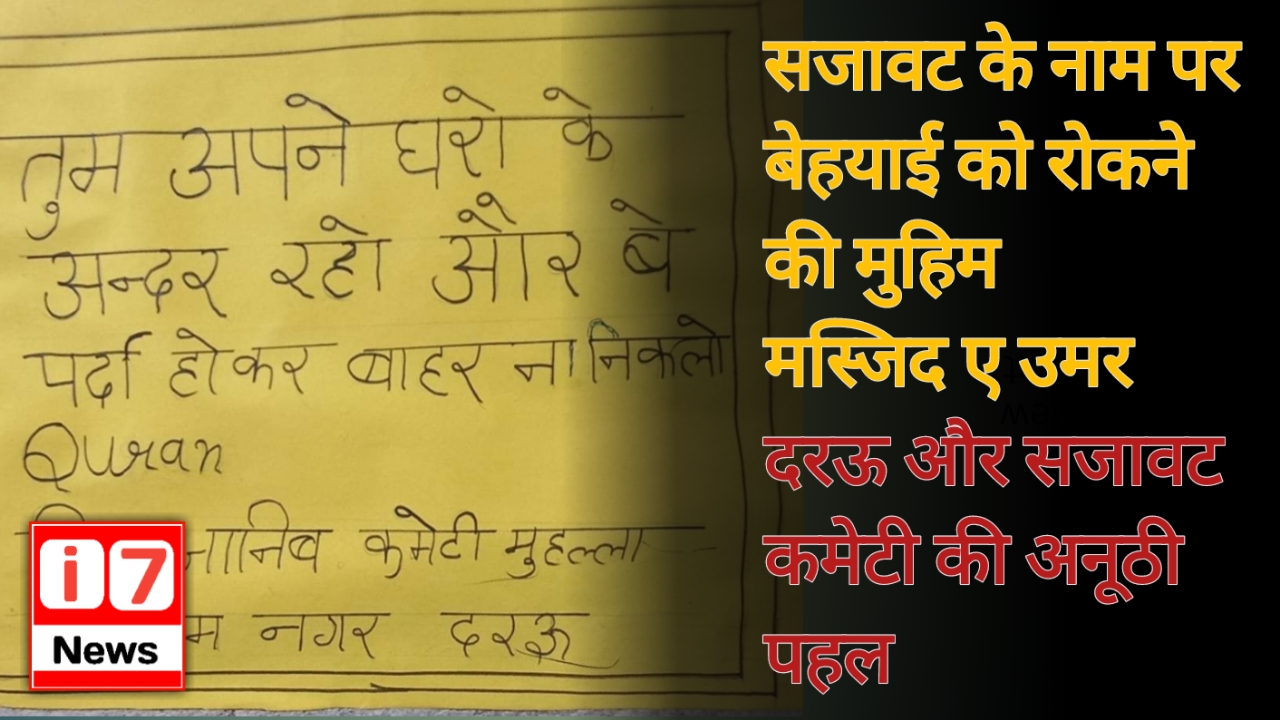 तुम अपने घरो के
अन्दर रहो और बे
पर्दा होकर बाहर ना निकलो
Quran
जानिब कमेटी मुहल्ला
नगर दरऊ
i7
News
सजावट के नाम पर
बेहयाई को रोकने
की मुहिम
मस्जिद ए उमर
दरऊ और सजावट
कमेटी की अनूठी
पहल